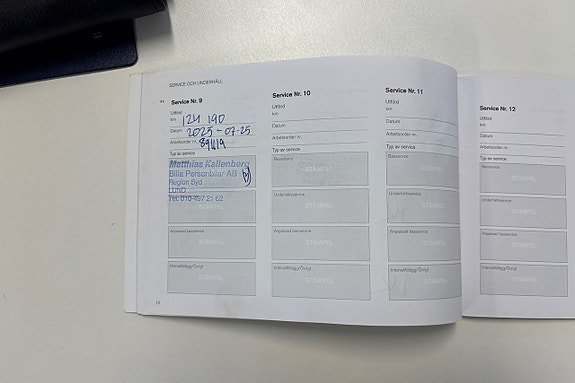 SERVICE OCH UNDERHÅLL
Service Nr. 9
Utförd
km 124 190
Datum 2025-07-25
Arbetsorder nr. 89419
Typ av service
Matthias Kallenberg
Bilia Personbilar AB
Region Syd
LUND
Tel: 010-497 21 62
STÄMPEL
Anpassad basservice
STÄMPEL
Intervalltillägg/Övrigt
STÄMPEL
Service Nr. 10
Utförd
km
Datum
Arbetsorder nr.
Typ av service
Basservice
STÄMPEL
Underhållsservice
STÄMPEL
Anpassad basservice
STÄMPEL
Intervalltillägg/Övrigt
STÄMPEL
Service Nr. 11
Utförd
km
Datum
Arbetsorder nr.
Typ av service
Basservice
STÄMPEL
Underhållsservice
STÄMPEL
Anpassad basservice
STÄMPEL
Intervalltillägg/Övrigt
STÄMPEL
Service Nr. 12
Utförd
km
Datum
Arbetsorder nr.
Typ av service
Basservice
STÄMPEL
Underhållsservice
STÄMPEL
Anpassad basservice
STÄMPEL
Intervalltillägg/Övrigt
STÄMPEL